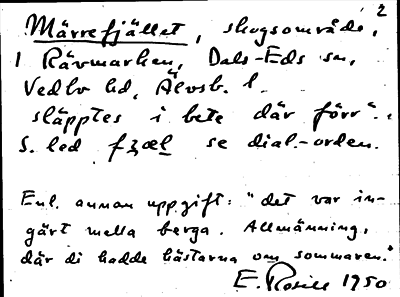 2
Märrefjället, skogsområde,
i Rävmarken, Dals-Eds sn,
Vedbo hd, Älvsb. l.
släpptes i bete där förr".
S. led fʒæl se dial.-orden.
Enl. annan uppgift: "det var in-
gärt mella berga. Allmänning,
där di hadde hästarna om sommaren."
E. Rosell 1950